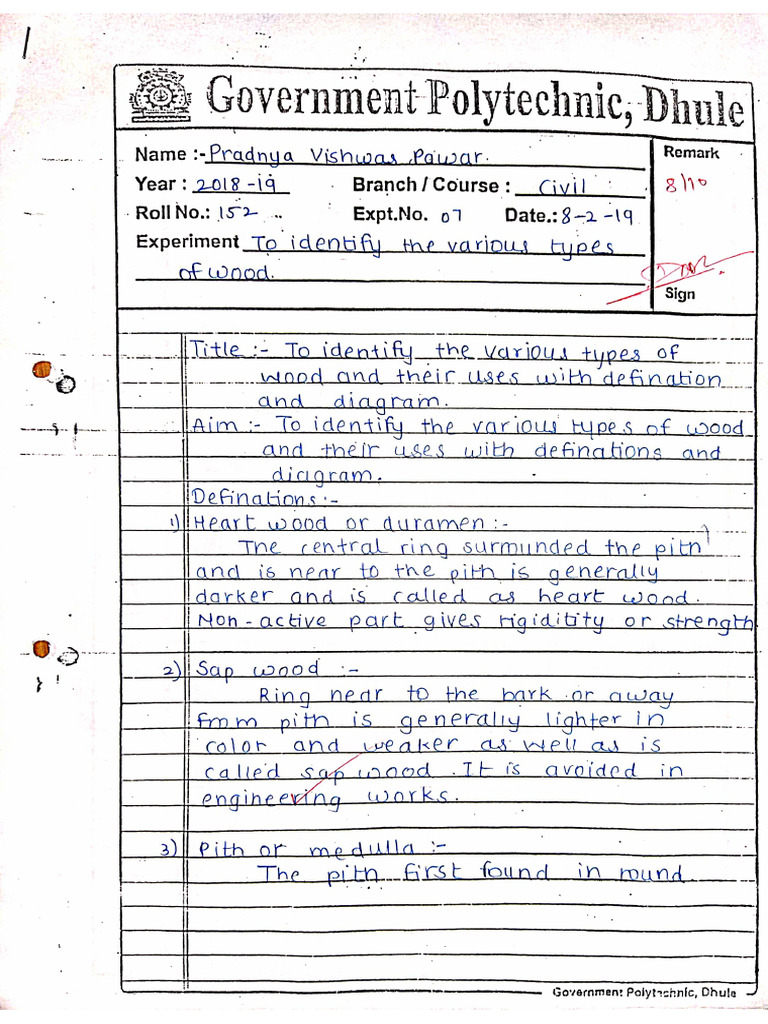 Government Polytechnic, Dhule
Name :- Pradnya Vishwas Pawar.
Remark
Year : 2018-19 Branch / Course : Civil
8/10
Roll No.: 152 Expt.No. 07 Date.: 8-2-19
Experiment To identify the various types
of wood.
Sign
Title :- To identify the various types of
wood and their uses with defination
and diagram.
Aim :- To identify the various types of wood
and their uses with definations and
diagram.
Definations :-
1) Heart wood or duramen :-
The central ring surmunded the pith
and is near to the pith is generally
darker and is called as heart wood.
Non-active part gives rigiditity or strength
2) Sap wood :-
Ring near to the bark or away
from pith is generally lighter in
color and weaker as well as is
called sap wood. It is avoided in
engineering works.
3) Pith or medulla :-
The pith first found in round
Government Polytechnic, Dhule